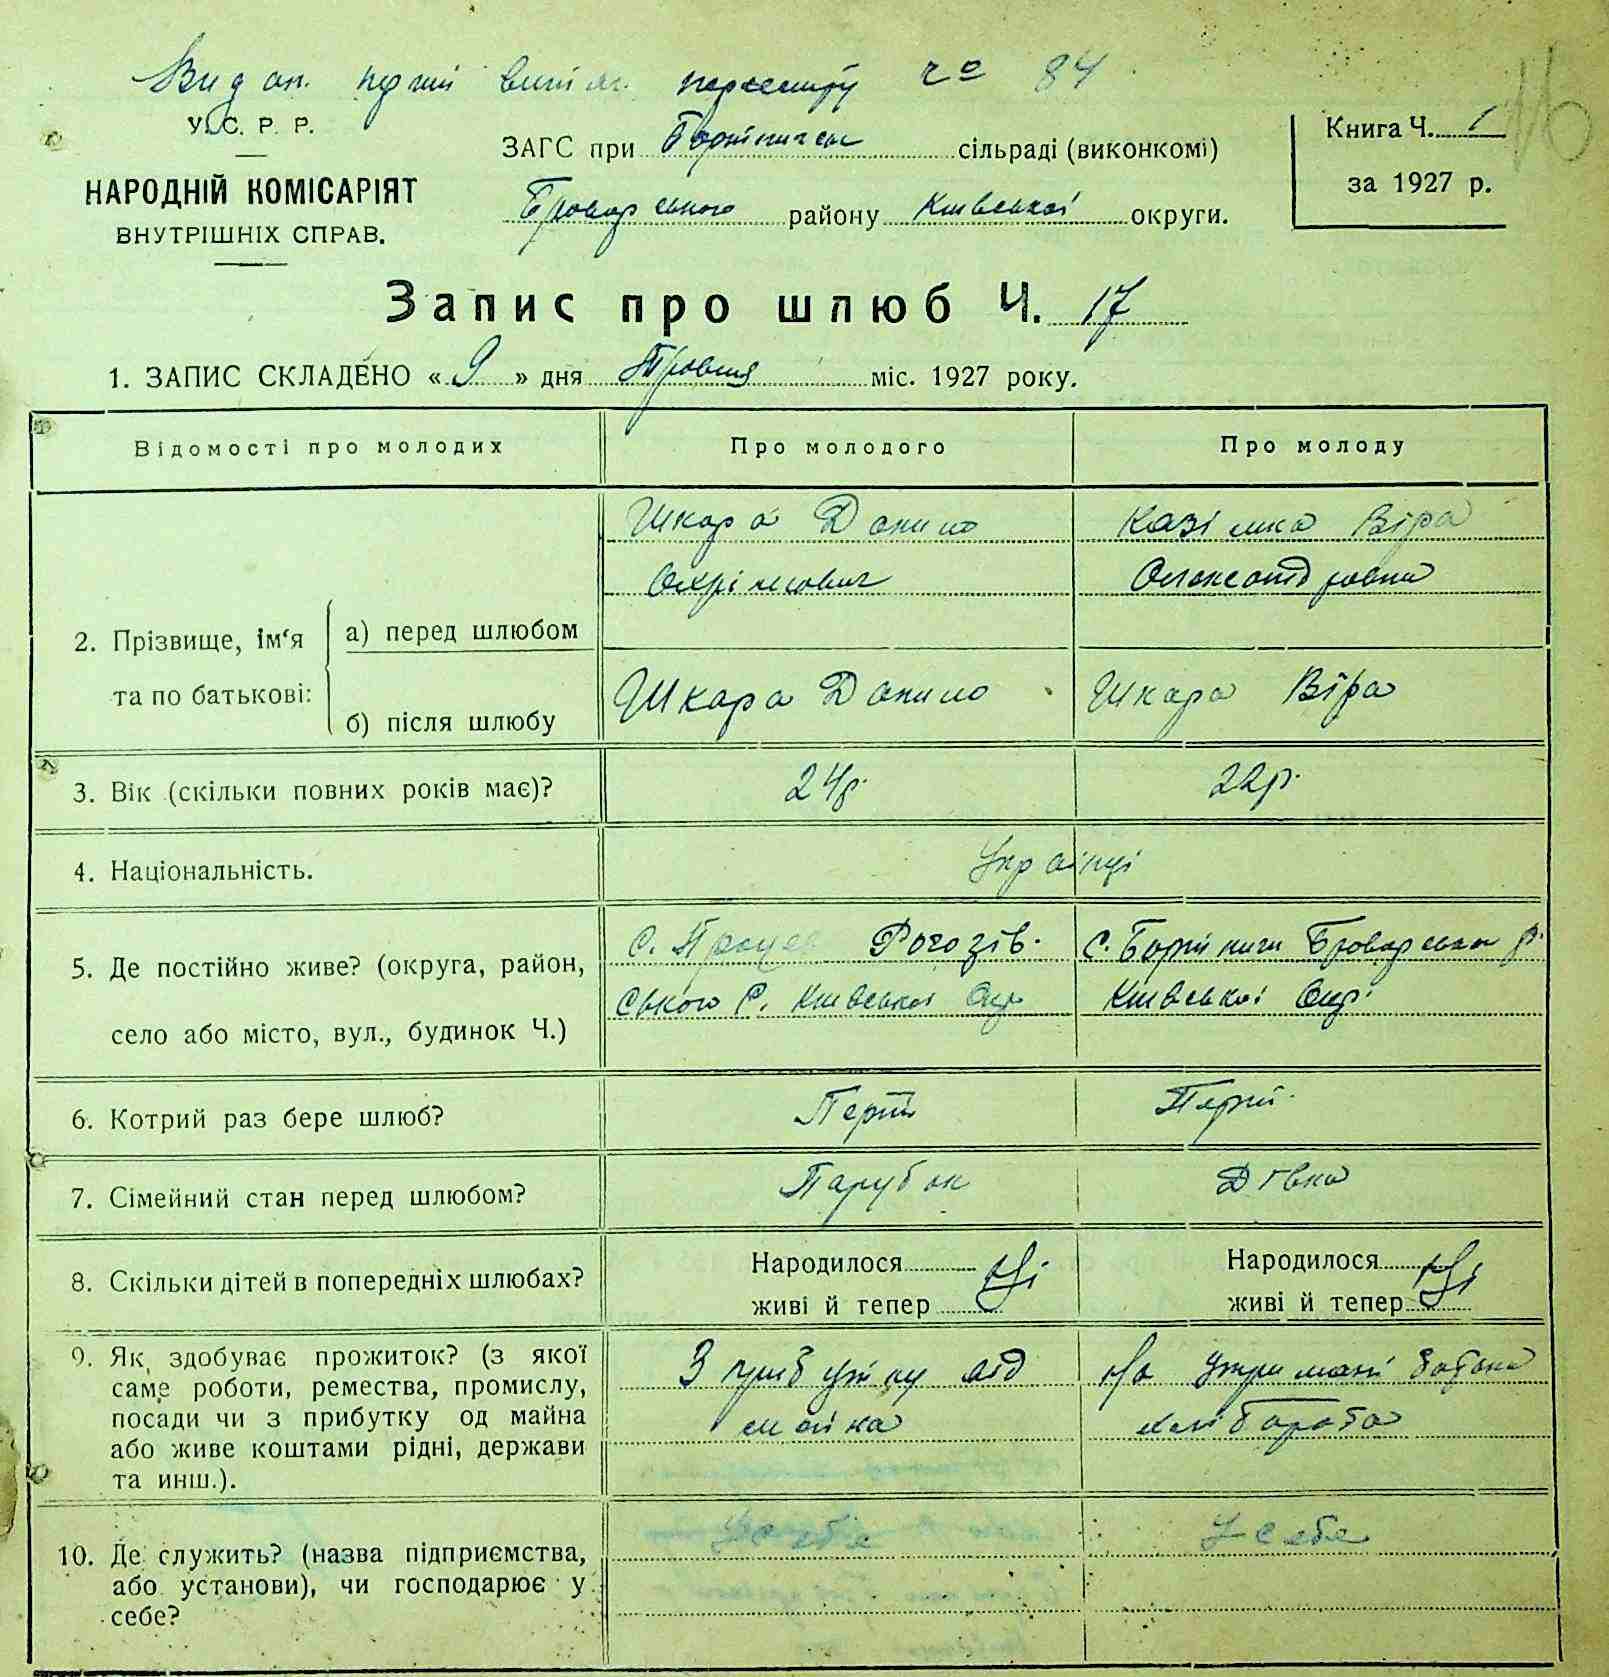 Видан. витяг. реєстру Чо 84
У. С. Р. Р.
НАРОДНІЙ КОМІСАРІЯТ
ВНУТРІШНІХ СПРАВ.
ЗАГС при сільраді (виконкомі)
Броварського району Київської округи.
Книга Ч. 1
за 1927 р.
16
Запис про шлюб Ч. 17
1. ЗАПИС СКЛАДЕНО « 9 » дня Травня міс. 1927 року.
Відомості про молодих
Про молодого
Про молоду
2. Прізвище, ім'я та по батькові:
а) перед шлюбом
Шкара Данило
Казімка Віра
Олександровна
б) після шлюбу
Шкара Данило
Шкара Віра
3. Вік (скільки повних років має)?
24р.
22р.
4. Національність.
Українці
5. Де постійно живе? (округа, район,
село або місто, вул., будинок Ч.)
с. Процев Рогозів-
ського Р. Київської Окр
с. Бортничи Броварськ р.
Київської Окр.
6. Котрий раз бере шлюб?
Перш.
Перш.
7. Сімейний стан перед шлюбом?
Парубок
Дівка
8. Скільки дітей в попередніх шлюбах?
Народилося
живі й тепер
Ні
Народилося
живі й тепер
Ні
9. Як здобуває прожиток? (з якої
саме роботи, ремества, промислу,
посади чи з прибутку од майна
або живе коштами рідні, держави
та инш.).
З прибутку від
майна
На утримані батька
хлібороба
10. Де служить? (назва підприємства,
або установи), чи господарює у
себе?
У себе
У себе